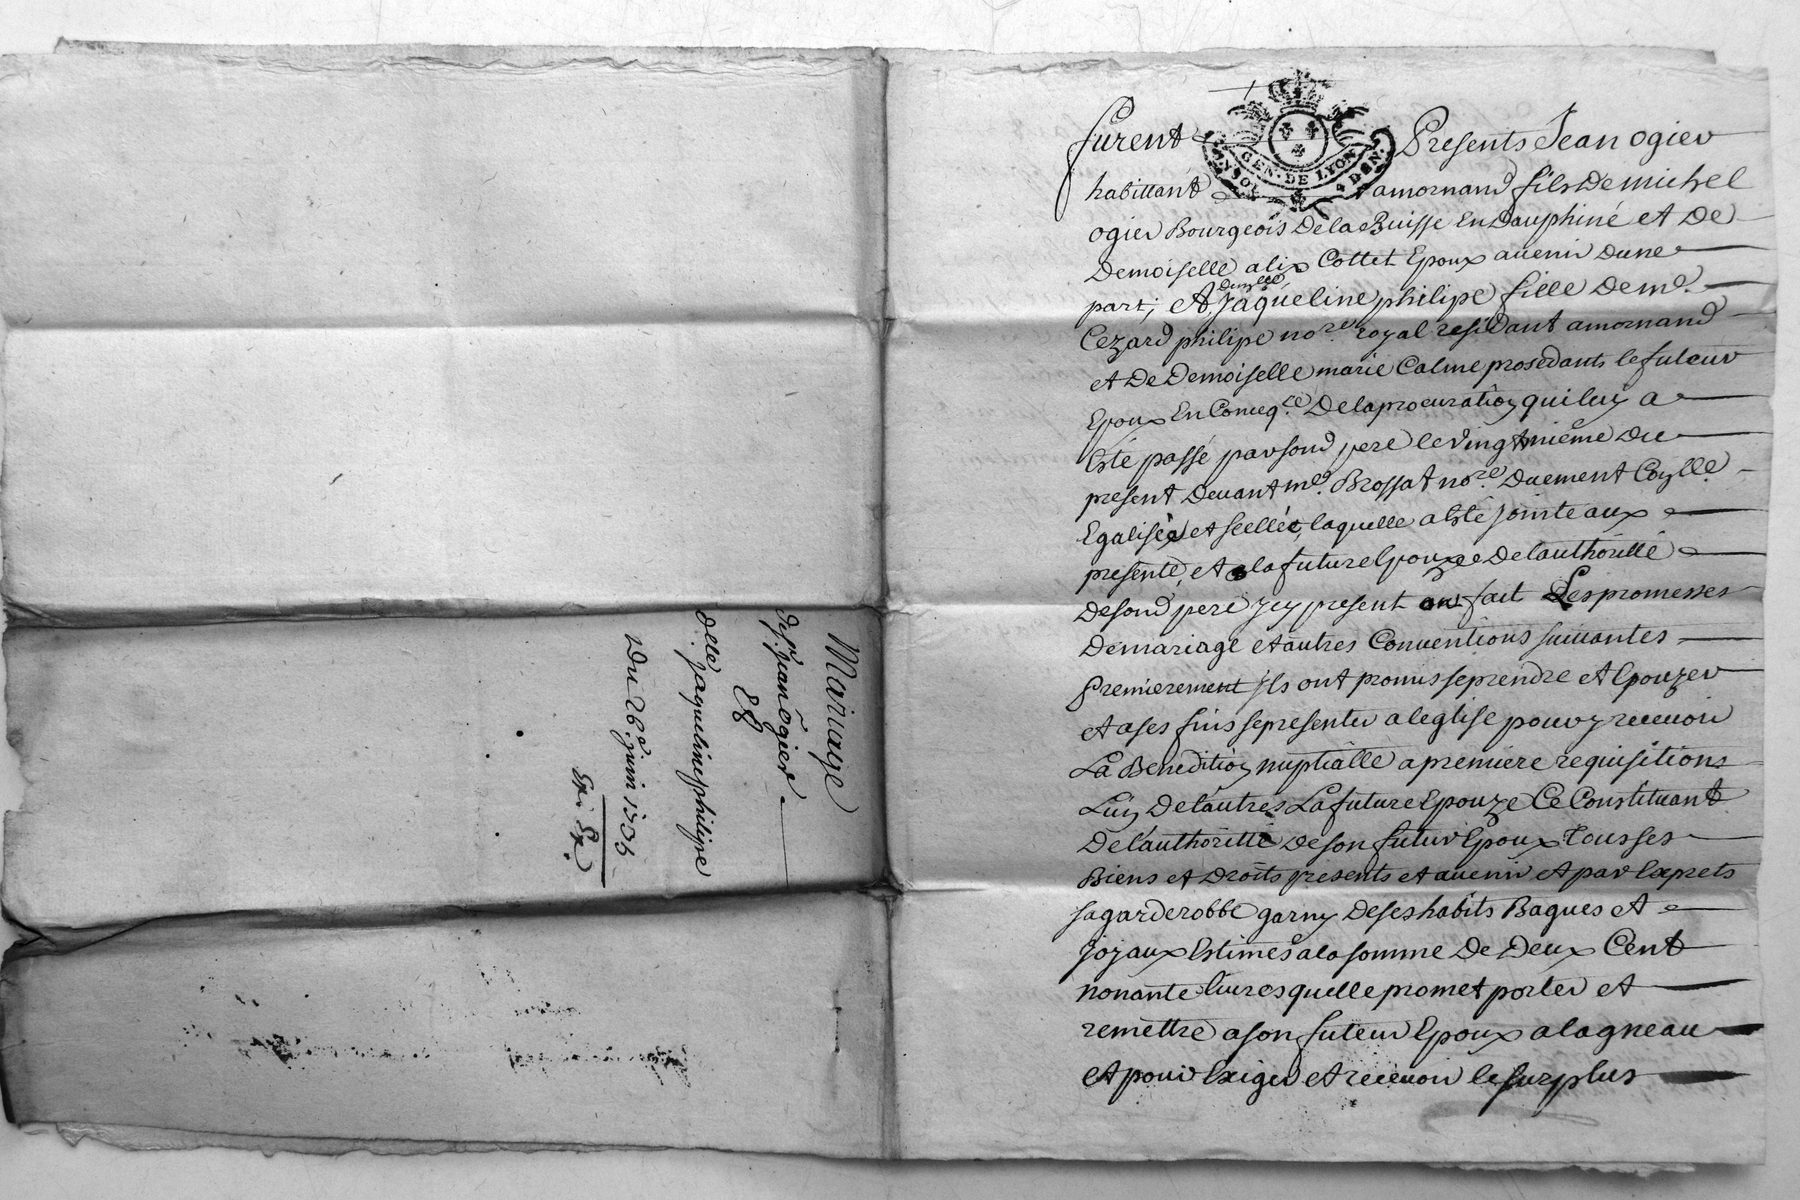 Mariage
de sr jean ôgier
Et
delle jaqueline philipe
Du 26e juin 1735
Exp. Ex.
furent Presents Jean ogier
GEN. DE LYON
habittant amornand fils De michel
ogier Bourgeois De la Buisse En Dauphiné et De
Demoiselle alix Cottet Epoux auenir dune
part; et Dmzelle Jaqueline philipe fille De me.
Cezard philipe nore. royal residant amornand
et De Demoiselle marie Calme prosedants le futeur
Epoux En Conseqce De la procuration qui luy a
Esté passé par sond pere le vingtunième Du
present Deuant me. Brossat nore. Duement Coyllé.
Egalisée et scellée, laquelle a Esté jointe aux
presente, et la future Epouze De lauthoritté
De sond pere Jcy present ont fait Les promesses
De mariage et autres Conuentions suiuantes
Premierement Jls ont promis se prendre et Epouzer
et a ses fins se presenter a leglise pour y receuoir
La Benedition nuptialle a premiere requisitions
Luy De lautres La future Epouze Ce Constituant
De lauthoritté De son futur Epoux Tous ses
Biens et Droits presents et auenir et par Exprets
sa garderobbe garny De ses habits Bagues et
Joyaux Estimés a la somme De Deux Cent
nonante liures quelle promet porter et
remettre a son futeur Epoux a lagneau
et pour Exiger et receuoir le surplus